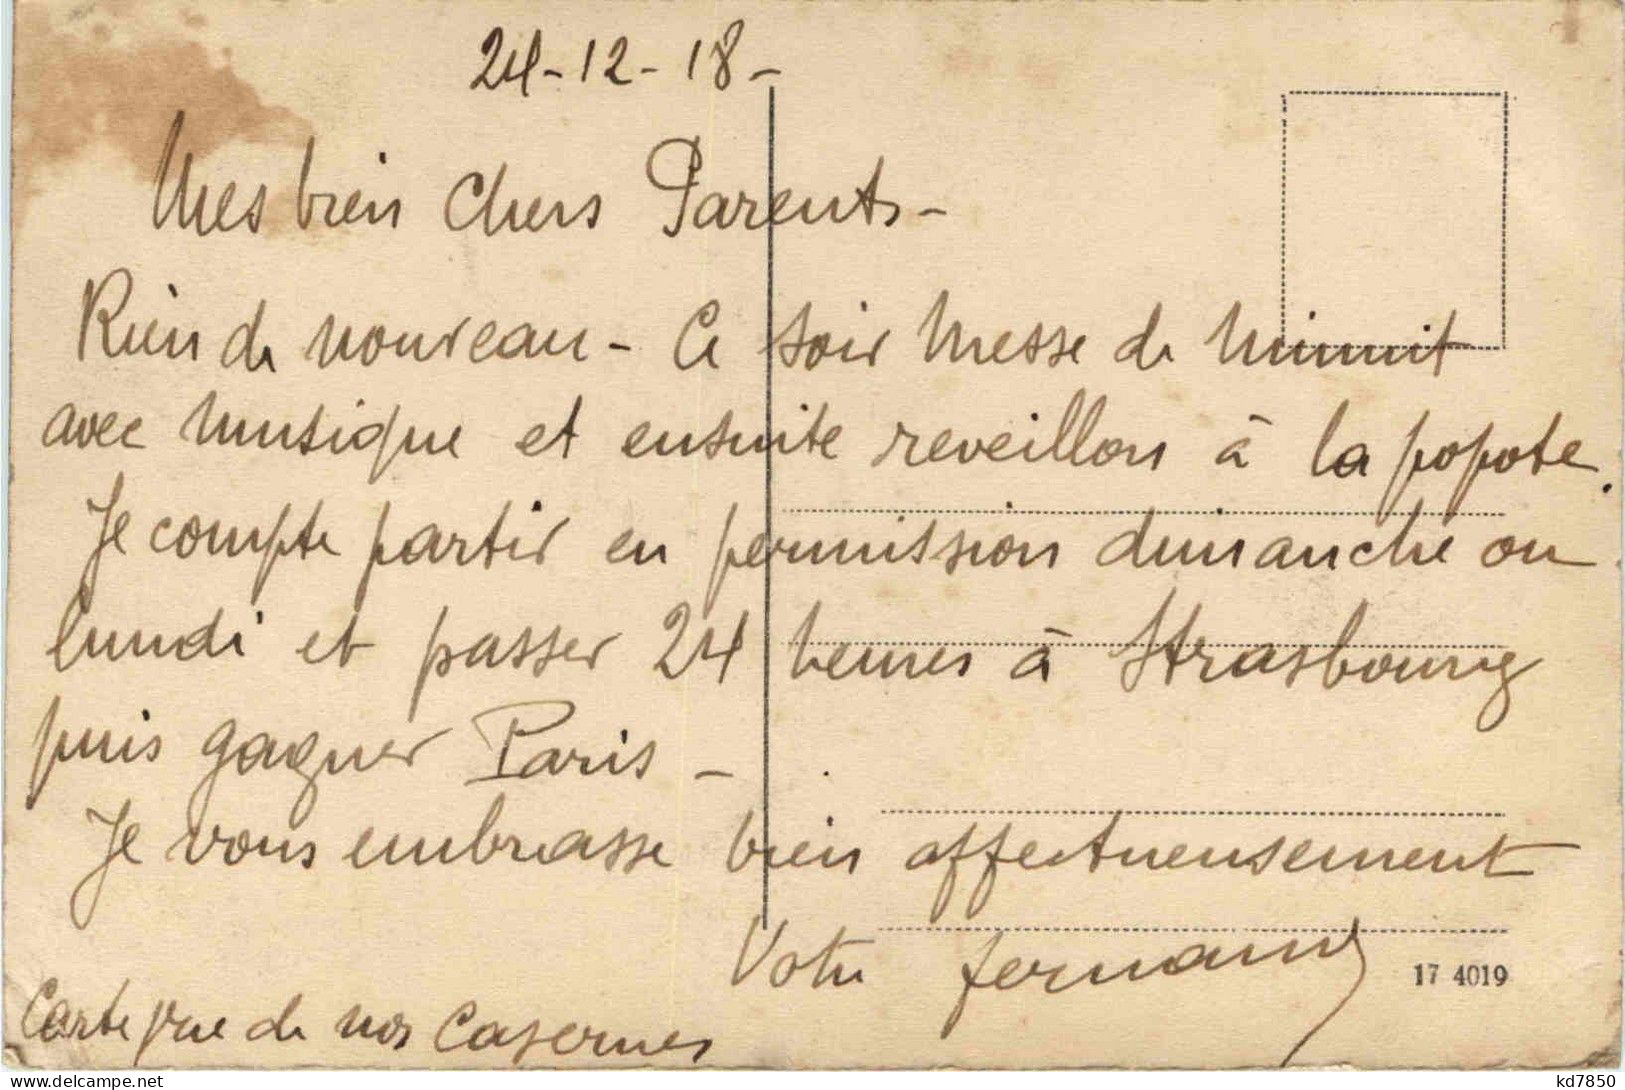 24-12-18-
Mes bien Chers Parents-
Rien de nouveau - Ce soir Messe de Minuit
avec musique et ensuite reveillon à la popote.
Je compte partir en permission dimanche ou
lundi et passer 24 heures à Strasbourg
puis gagner Paris -
Je vous embrasse bien affectueusement
Votre Fernand
17 4019
Carte vue de nos Casernes
kd7850